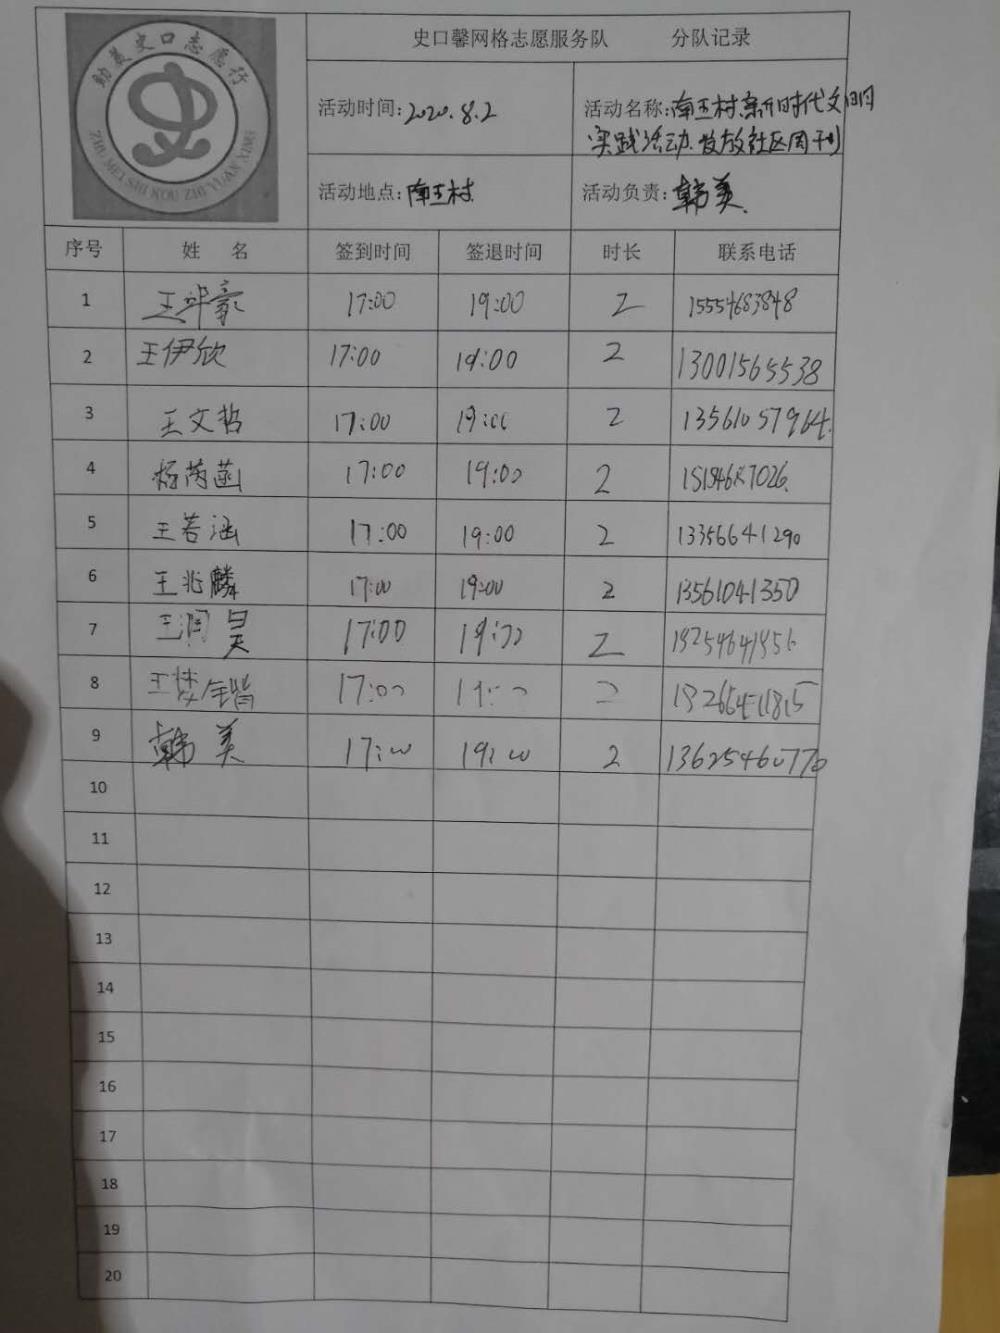 助美史口志愿行
ZHU MEI SHI KOU ZHI YUAN XING
史口馨网格志愿服务队 分队记录
活动时间:2020.8.2
活动名称:南王村新时代文明
实践活动.发放社区周刊
活动地点:南王村
活动负责:韩美
序号 姓 名 签到时间 签退时间 时长 联系电话
1 王 豪 17:00 19:00 2 15554683848
2 王伊欣 17:00 19:00 2 13001565538
3 王文哲 17:00 19:00 2 13561057964.
4 杨芮菡 17:00 19:00 2
5 王若涵 17:00 19:00 2 13356641290
6 王兆麟 17:00 19:00 2 13561041350
7 王润昊 17:00 19:00 2
8 王梦锴 17:00 19:00 2
9 韩美 17:00 19:00 2 13625460770
10
11
12
13
14
15
16
17
18
19
20